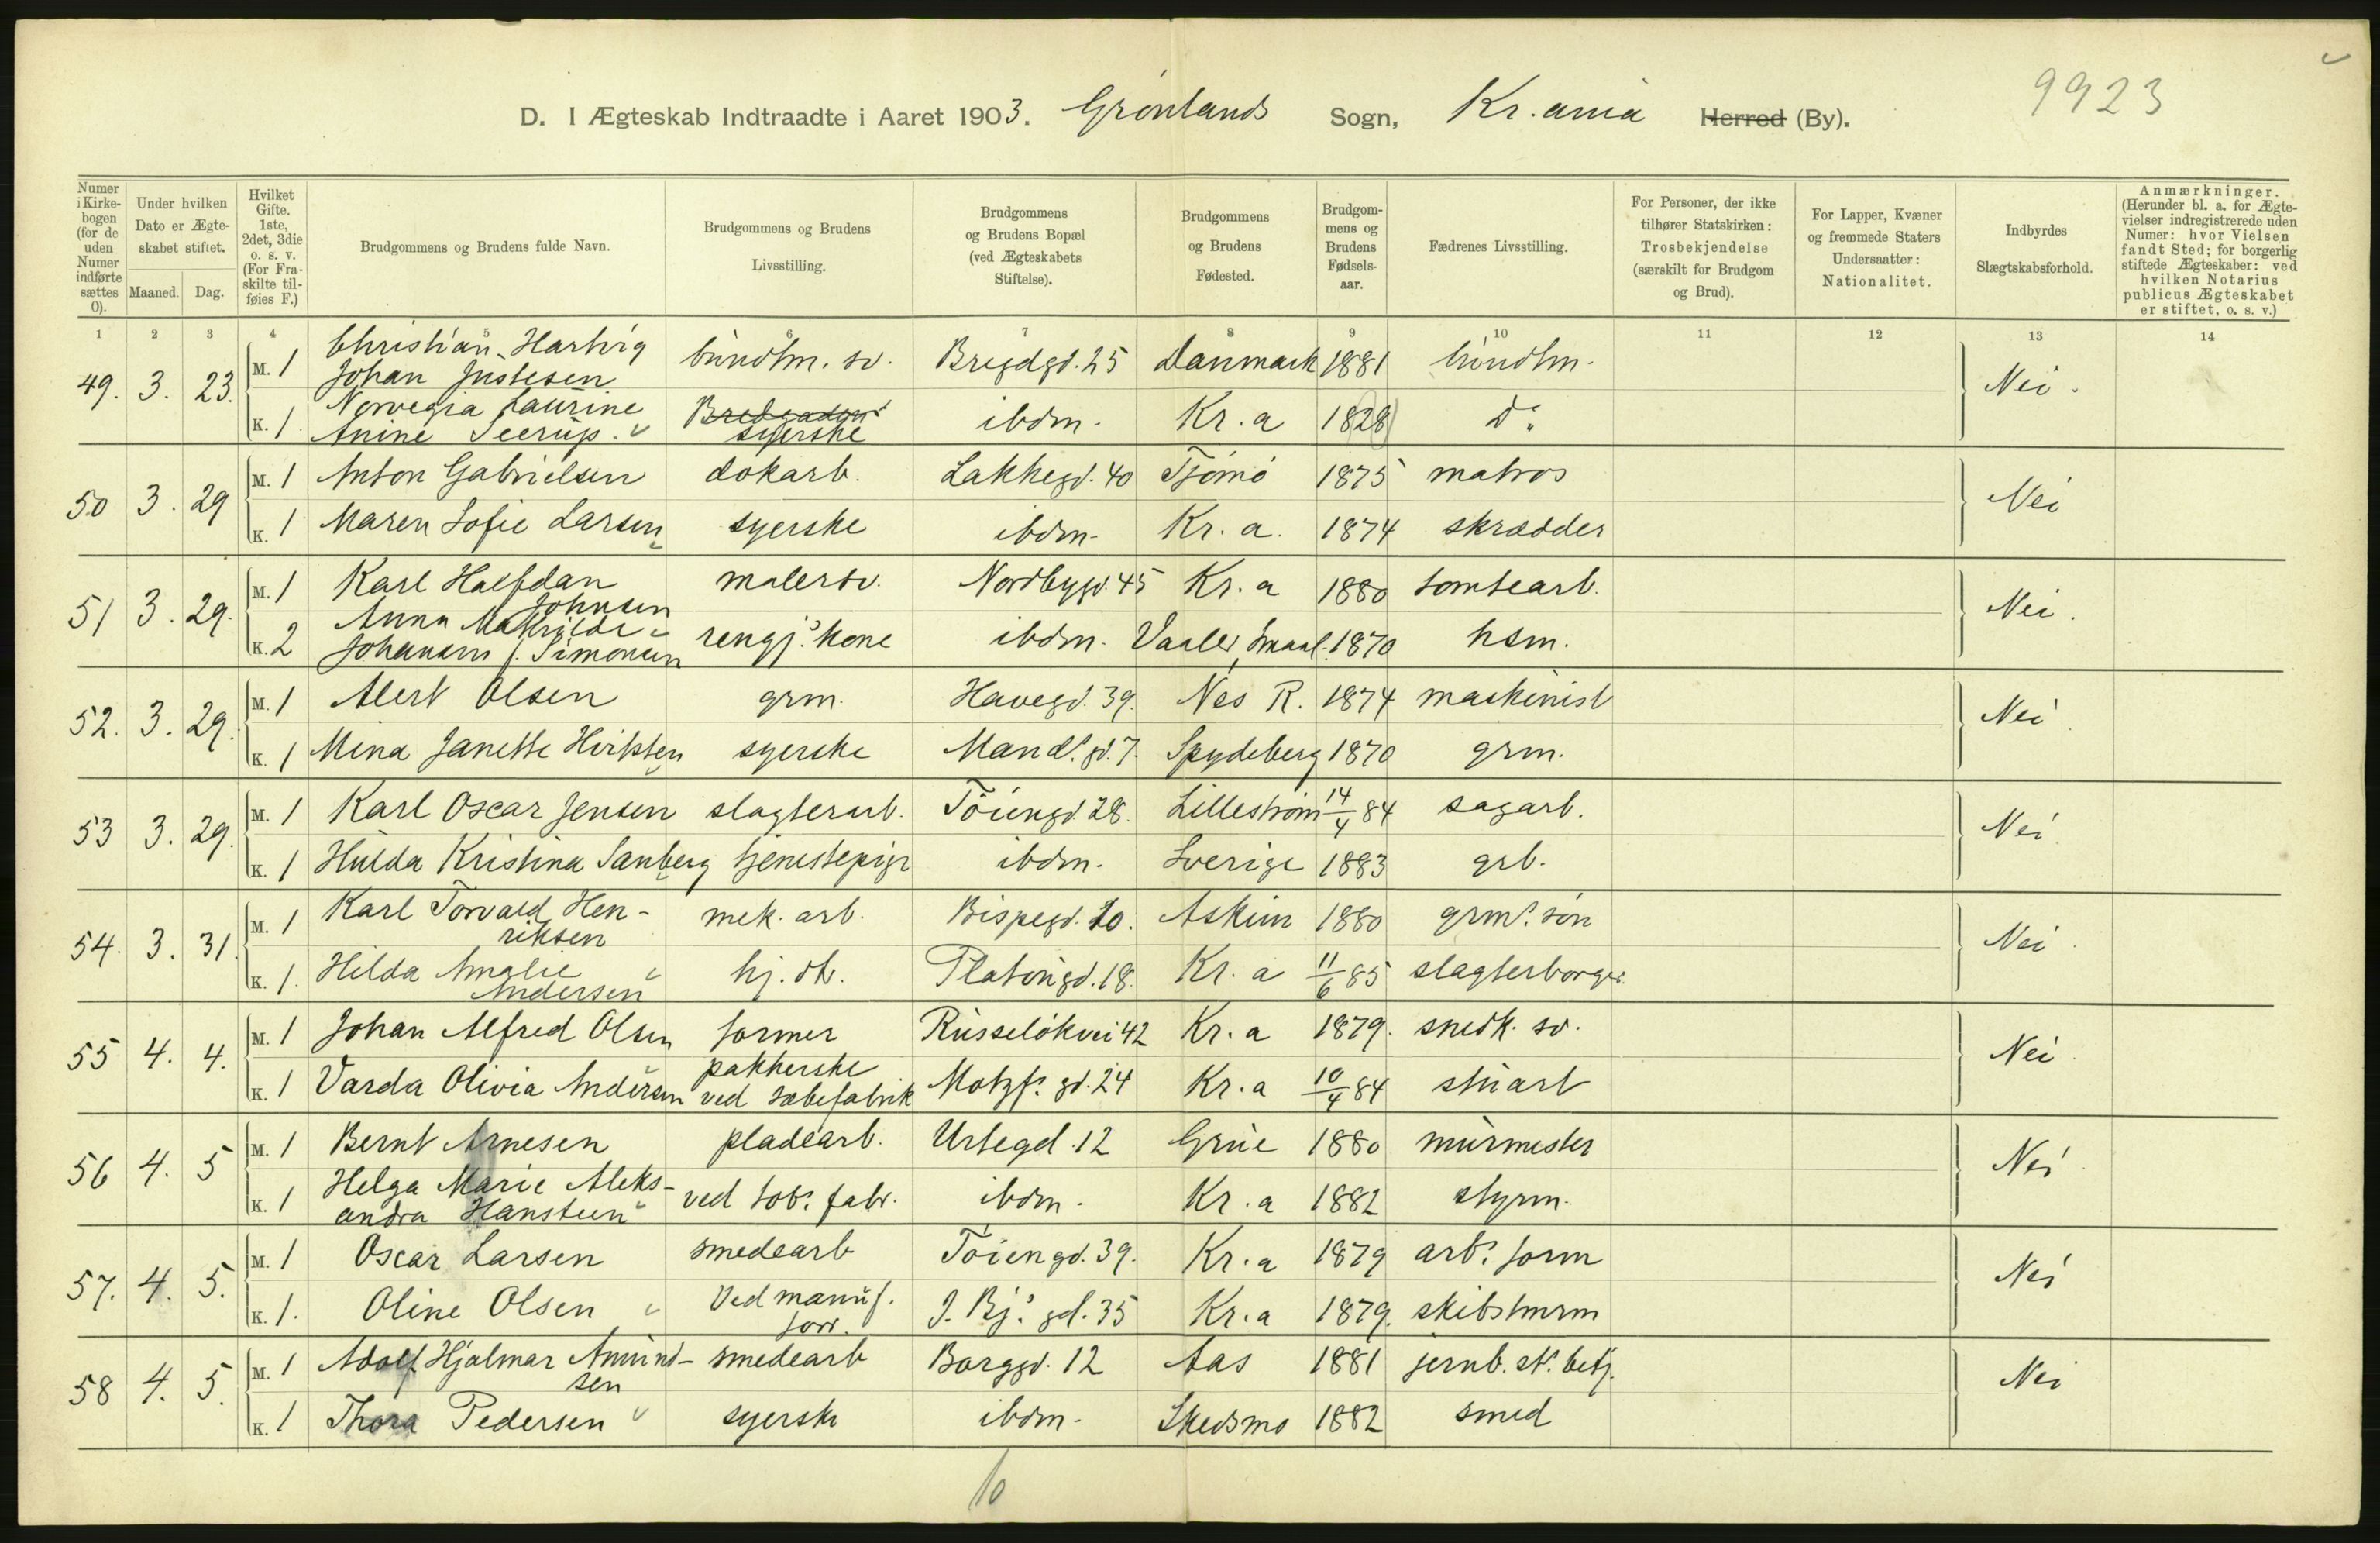 9923
D. I Ægteskab Indtraadte i Aaret 1903. Grønlands Sogn, Kr.ania Herred (By).
Numer i Kirkebogen (for de uden Numer indførte sættes 0).
Under hvilken Dato er Ægteskabet stiftet.
Maaned. Dag.
Hvilket Gifte. 1ste, 2det, 3die o. s. v. (For Fraskilte tilføies F.)
Brudgommens og Brudens fulde Navn.
Brudgommens og Brudens Livsstilling.
Brudgommens og Brudens Bopæl (ved Ægteskabets Stiftelse).
Brudgommens og Brudens Fødested.
Brudgommens og Brudens Fødselsaar.
Fædrenes Livsstilling.
For Personer, der ikke tilhører Statskirken: Trosbekjendelse (særskilt for Brudgom og Brud).
For Lapper, Kvæner og fremmede Staters Undersaatter: Nationalitet.
Indbyrdes Slægtskabsforhold.
Anmærkninger. (Herunder bl. a. for Ægtevielser indregistrerede uden Numer: hvor Vielsen fandt Sted; for borgerlig stiftede Ægteskaber: ved hvilken Notarius publicus Ægteskabet er stiftet, o. s. v.)
1 2 3 4 5 6 7 8 9 10 11 12 13 14
49. 3. 23. M. 1 Christian Hartvig Johan Justesen bundtm. sv. Bredgd. 25 Danmark 1881 bundtm. Nei.
K. 1. Norvegia Laurine Anine Seerup. Bredgaden syerske ibdm. Kr.a 1828 do
50 3. 29 M. 1 Anton Gabrielsen dokarb. Lakkegd. 40 Tjømø 1875 matros Nei
K. 1 Maren Sofie Larsen syerske ibdm. Kr.a. 1874 skrædder
51 3. 29. M. 1 Karl Halfdan Johnsen malersv. Nordbygd. 45 Kr.a 1880 tomtearb. Nei.
K. 2 Anna Mathilde Johansen f. Simonsen rengj.kone ibdm. Vaaler, Smaal. 1870 hsm.
52. 3. 29. M. 1 Alert Olsen grm. Havegd. 39. Nes R. 1874 maskinist Nei
K. 1 Mina Janette Hviksten syerske Mandl. gd. 7. Spydeberg 1870 grm.
53 3. 29. M. 1 Karl Oscar Jensen slagterarb. Tøiengd. 28. Lillestrøm 14/4 84 sagarb. Nei
K. 1 Hulda Kristina Sanberg tjenestepige ibdm. Sverige 1883 grb.
54. 3. 31. M. 1 Karl Torvald Henriksen mek. arb. Bispegd. 20. Askim 1880 grms. søn Nei
K. 1. Hilda Amalie Andersen hj. dt. Platougd. 18. Kr.a 11/6 85 slagterborger
55 4. 4. M. 1 Johan Alfred Olsen former Russeløkvei 42 Kr.a 1879. snedk. sv. Nei
K. 1 Varda Olivia Andersen pakkerske ved sæbefabrik Motzf. gd. 24 Kr.a 10/4 84 stuart
56 4. 5 M. 1 Bernt Arnesen pladearb. Urtegd. 12 Grue 1880 murmester Nei
K. 1 Helga Marie Aleksandra Hansteen ved tob. fabr. ibdm. Kr.a 1882 styrm.
57. 4. 5. M. 1 Oscar Larsen smedearb Tøiengd. 39. Kr.a 1879 arb. form Nei
K. 1. Oline Olsen Ved manuf. forr. J. Bj. gd. 35 Kr.a 1879. skibstmrm
58 4. 5. M. 1 Adolf Hjalmar Amundsen smedearb Borggd. 12 Aas 1881 jernb. st. betj. Nei
K. 1 Thora Pedersen syerske ibdm. Skedsmo 1882 smed
10